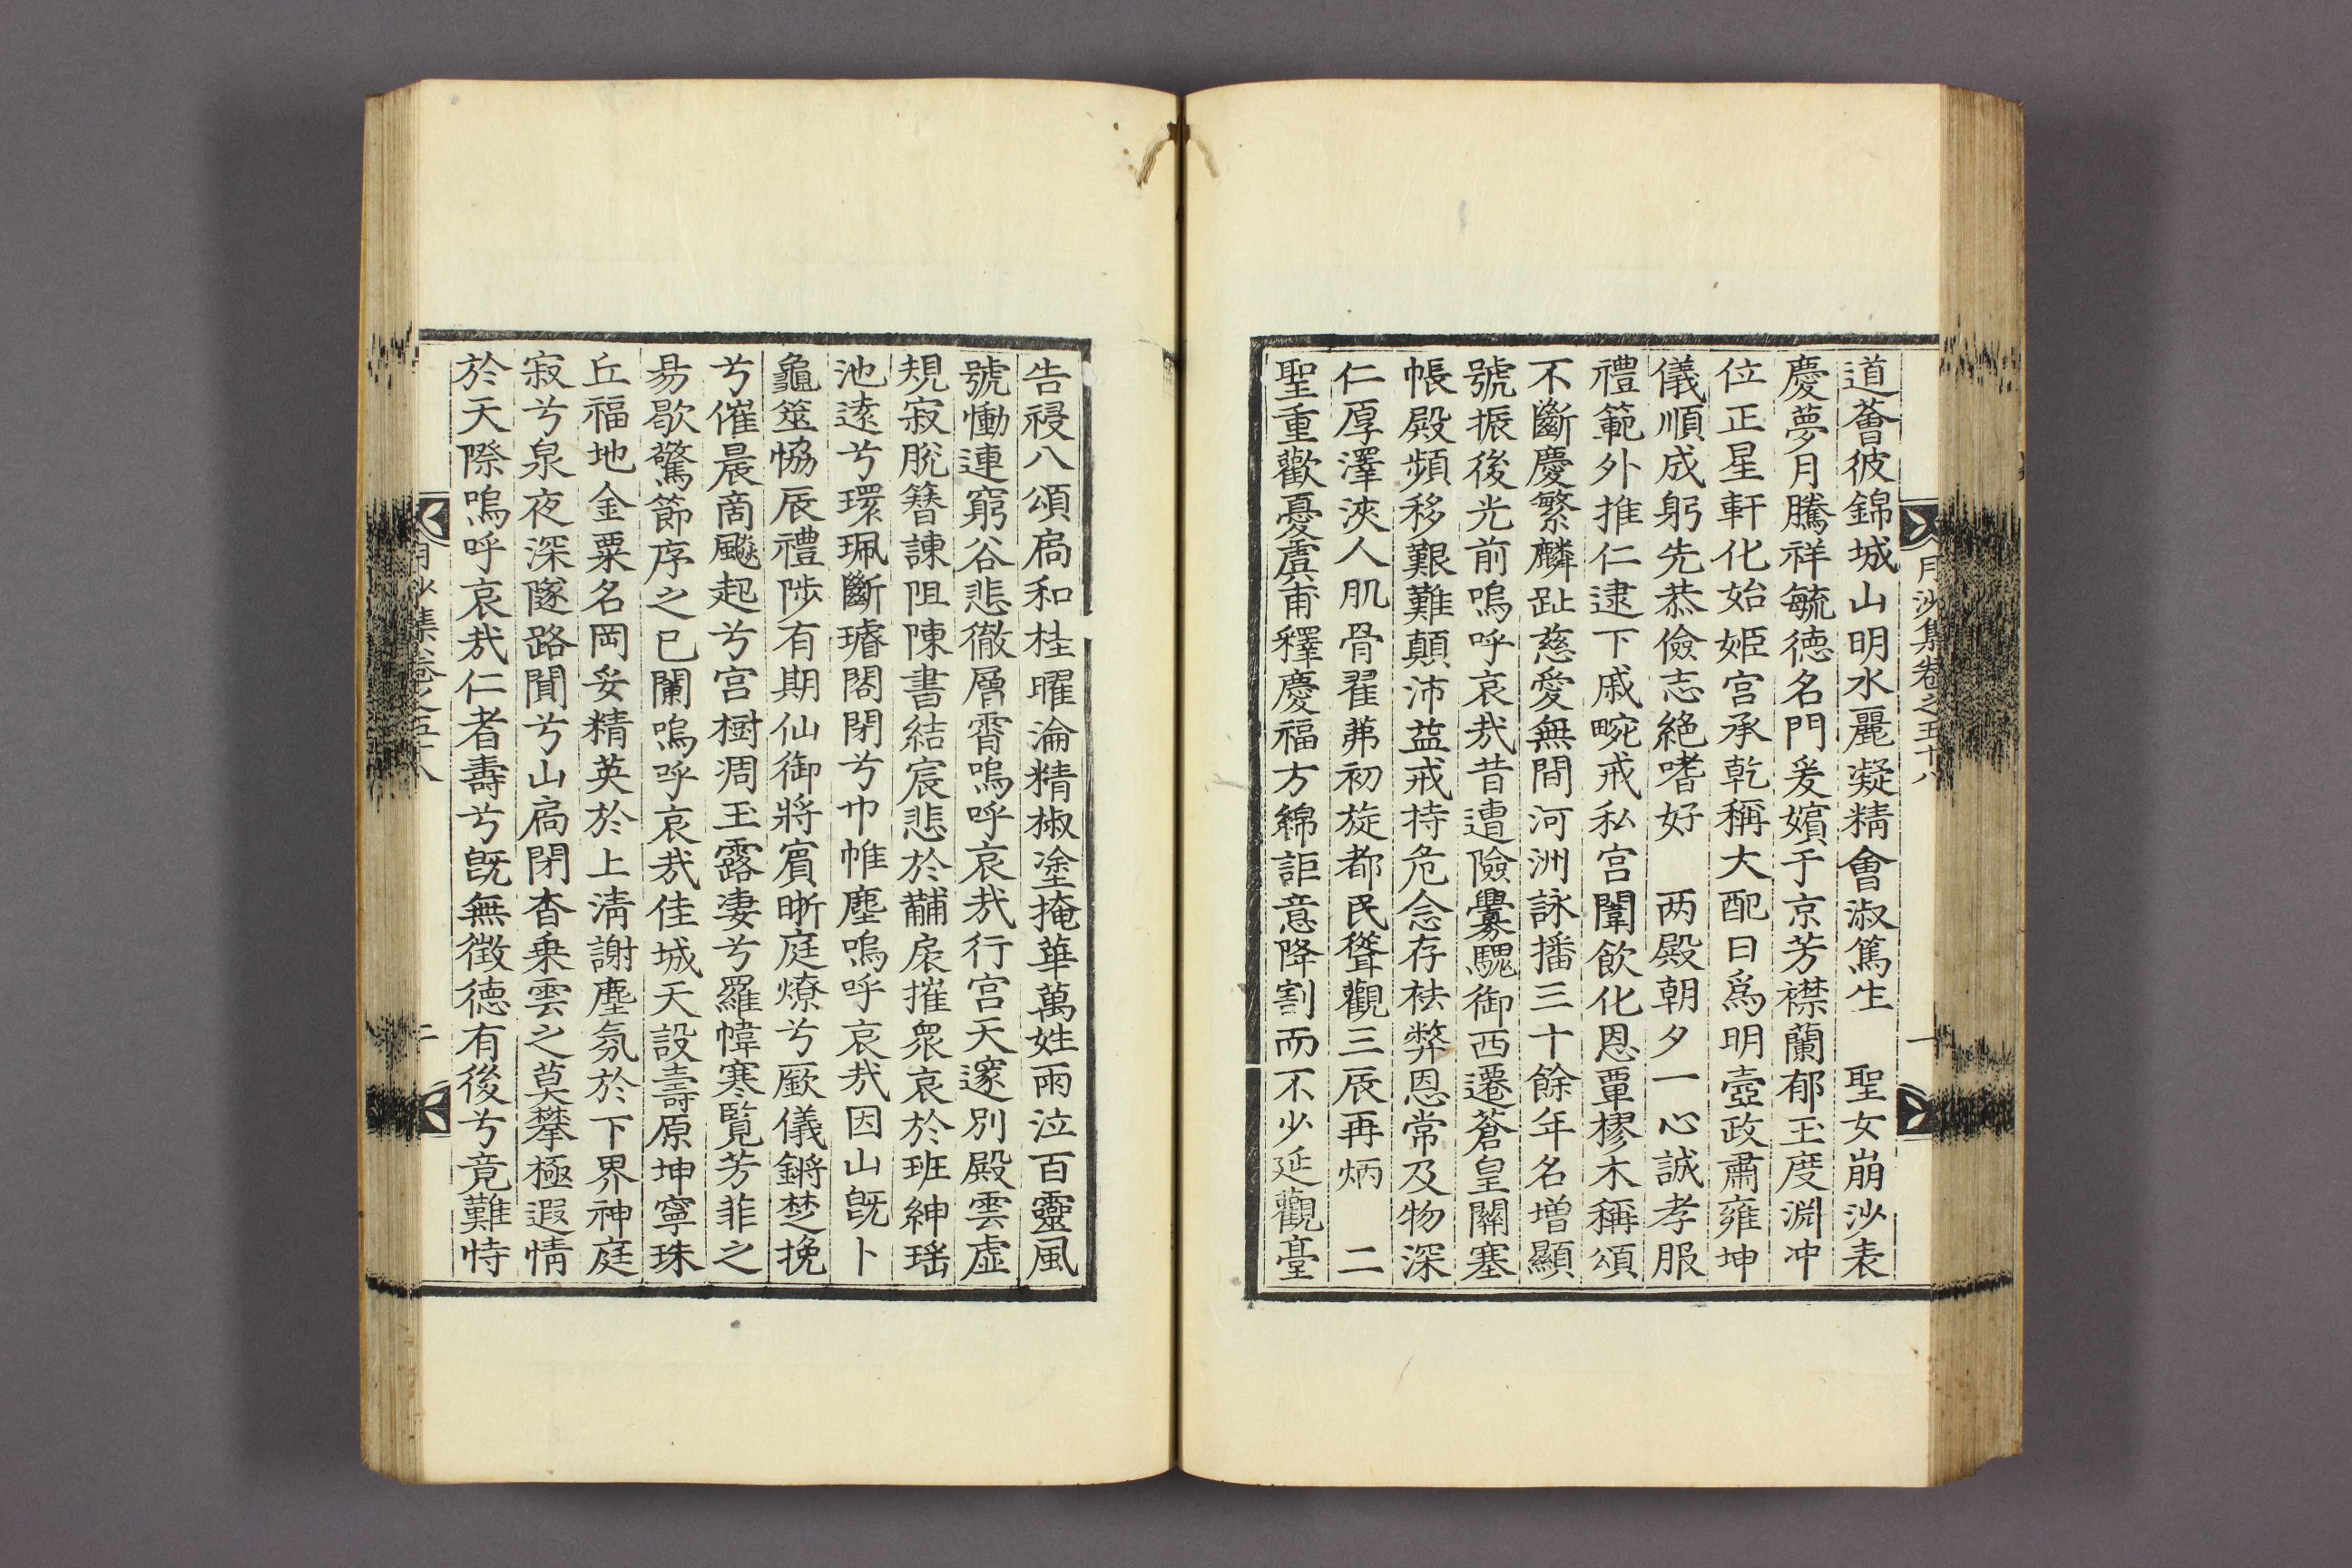 月沙集卷之五十八
一
道薈彼錦城山明水麗凝精會淑篤生　聖女崩沙表
慶夢月騰祥毓德名門爰嬪于京芳襟蘭郁玉度淵冲
位正星軒化始姬宫承乾稱大配日爲明壼政肅雍坤
儀順成躬先恭儉志絶嗜好　兩殿朝夕一心誠孝服
禮範外推仁逮下戚畹戒私宫闈飮化恩覃樛木稱頌
不斷慶繁麟趾慈愛無間河洲詠播三十餘年名增顯
號振後光前嗚呼哀哉昔遭險釁騩御西遷蒼皇關塞
帳殿頻移艱難顚沛益戒持危念存袪弊恩常及物深
仁厚澤浹人肌骨翟茀初旋都民聳觀三辰再炳　二
聖重歡憂虞甫釋慶福方綿詎意降割而不少延觀臺
告祲八頌扄和桂曜淪精椒塗掩華萬姓雨泣百靈風
號慟連窮谷悲徹層霄嗚呼哀哉行宫天邃别殿雲虚
規寂脫簪諫阻陳書結宸悲於黼扆摧衆哀於班紳瑤
池遠兮環珮斷璿閤閉兮巾帷塵嗚呼哀哉因山旣卜
龜筮恊辰禮陟有期仙御將賓晰庭燎兮厥儀鏘楚挽
兮催晨商飈起兮宫樹凋玉露凄兮羅幃寒覧芳菲之
昜歇驚節序之已闌嗚呼哀哉佳城天設壽原坤寧珠
丘福地金粟名岡妥精英於上淸謝塵氛於下界神庭
寂兮泉夜深隧路閴兮山扃閉杳乗雲之莫攀極遐情
於天際嗚呼哀哉仁者壽兮旣無徵德有後兮竟難恃
月沙集卷之五十八
二